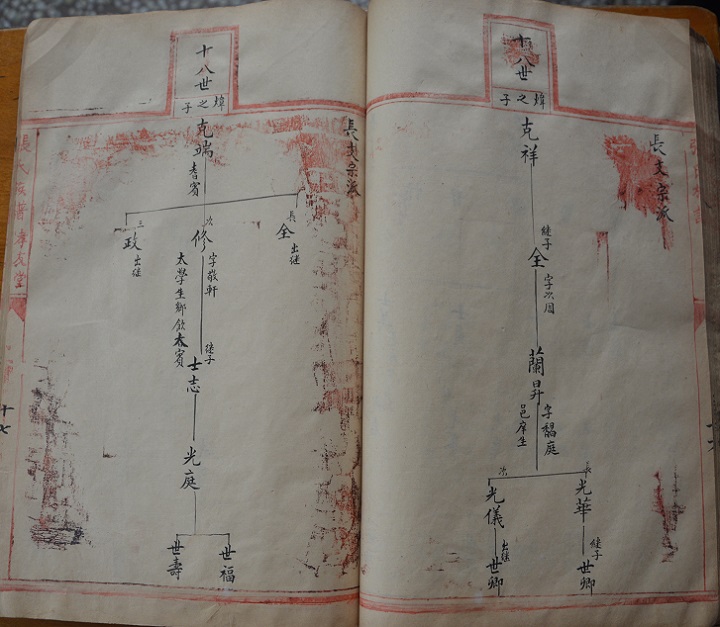 十八世
煒之子
長支宗派
克祥
繼子
全
字次周
蘭昇
字馤庭
邑庠生
長
光華
繼子
世卿
次
光儀
出繼
世卿
十八世
煒之子
長支宗派
克端
耆賓
長
全
出繼
次
修
字敬軒
太學生鄉飲大賓
三
政
出继
继子
士志
光庭
世福
世壽
張氏族譜孝友堂
十七